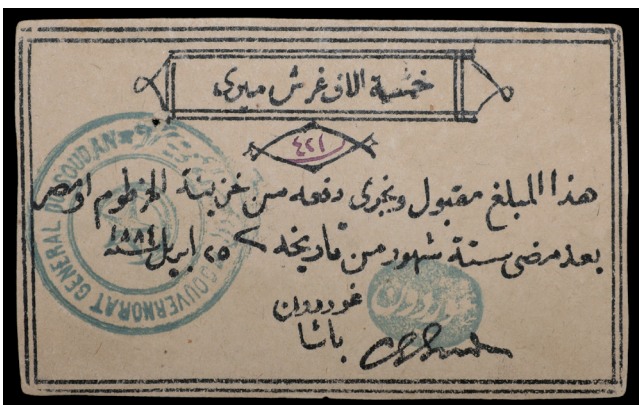 خمسة الاف غرش ميرى
٤٢١
هذا المبلغ مقبول ويجرى دفعه من خزينة الخرطوم او مصر
بعد مرضى ستة شهور من تاريخه ٢٥ ابريل سنة ١٨٨٤
غوردون
باشا
GOUVERNORAT GENERAL DU SOUDAN